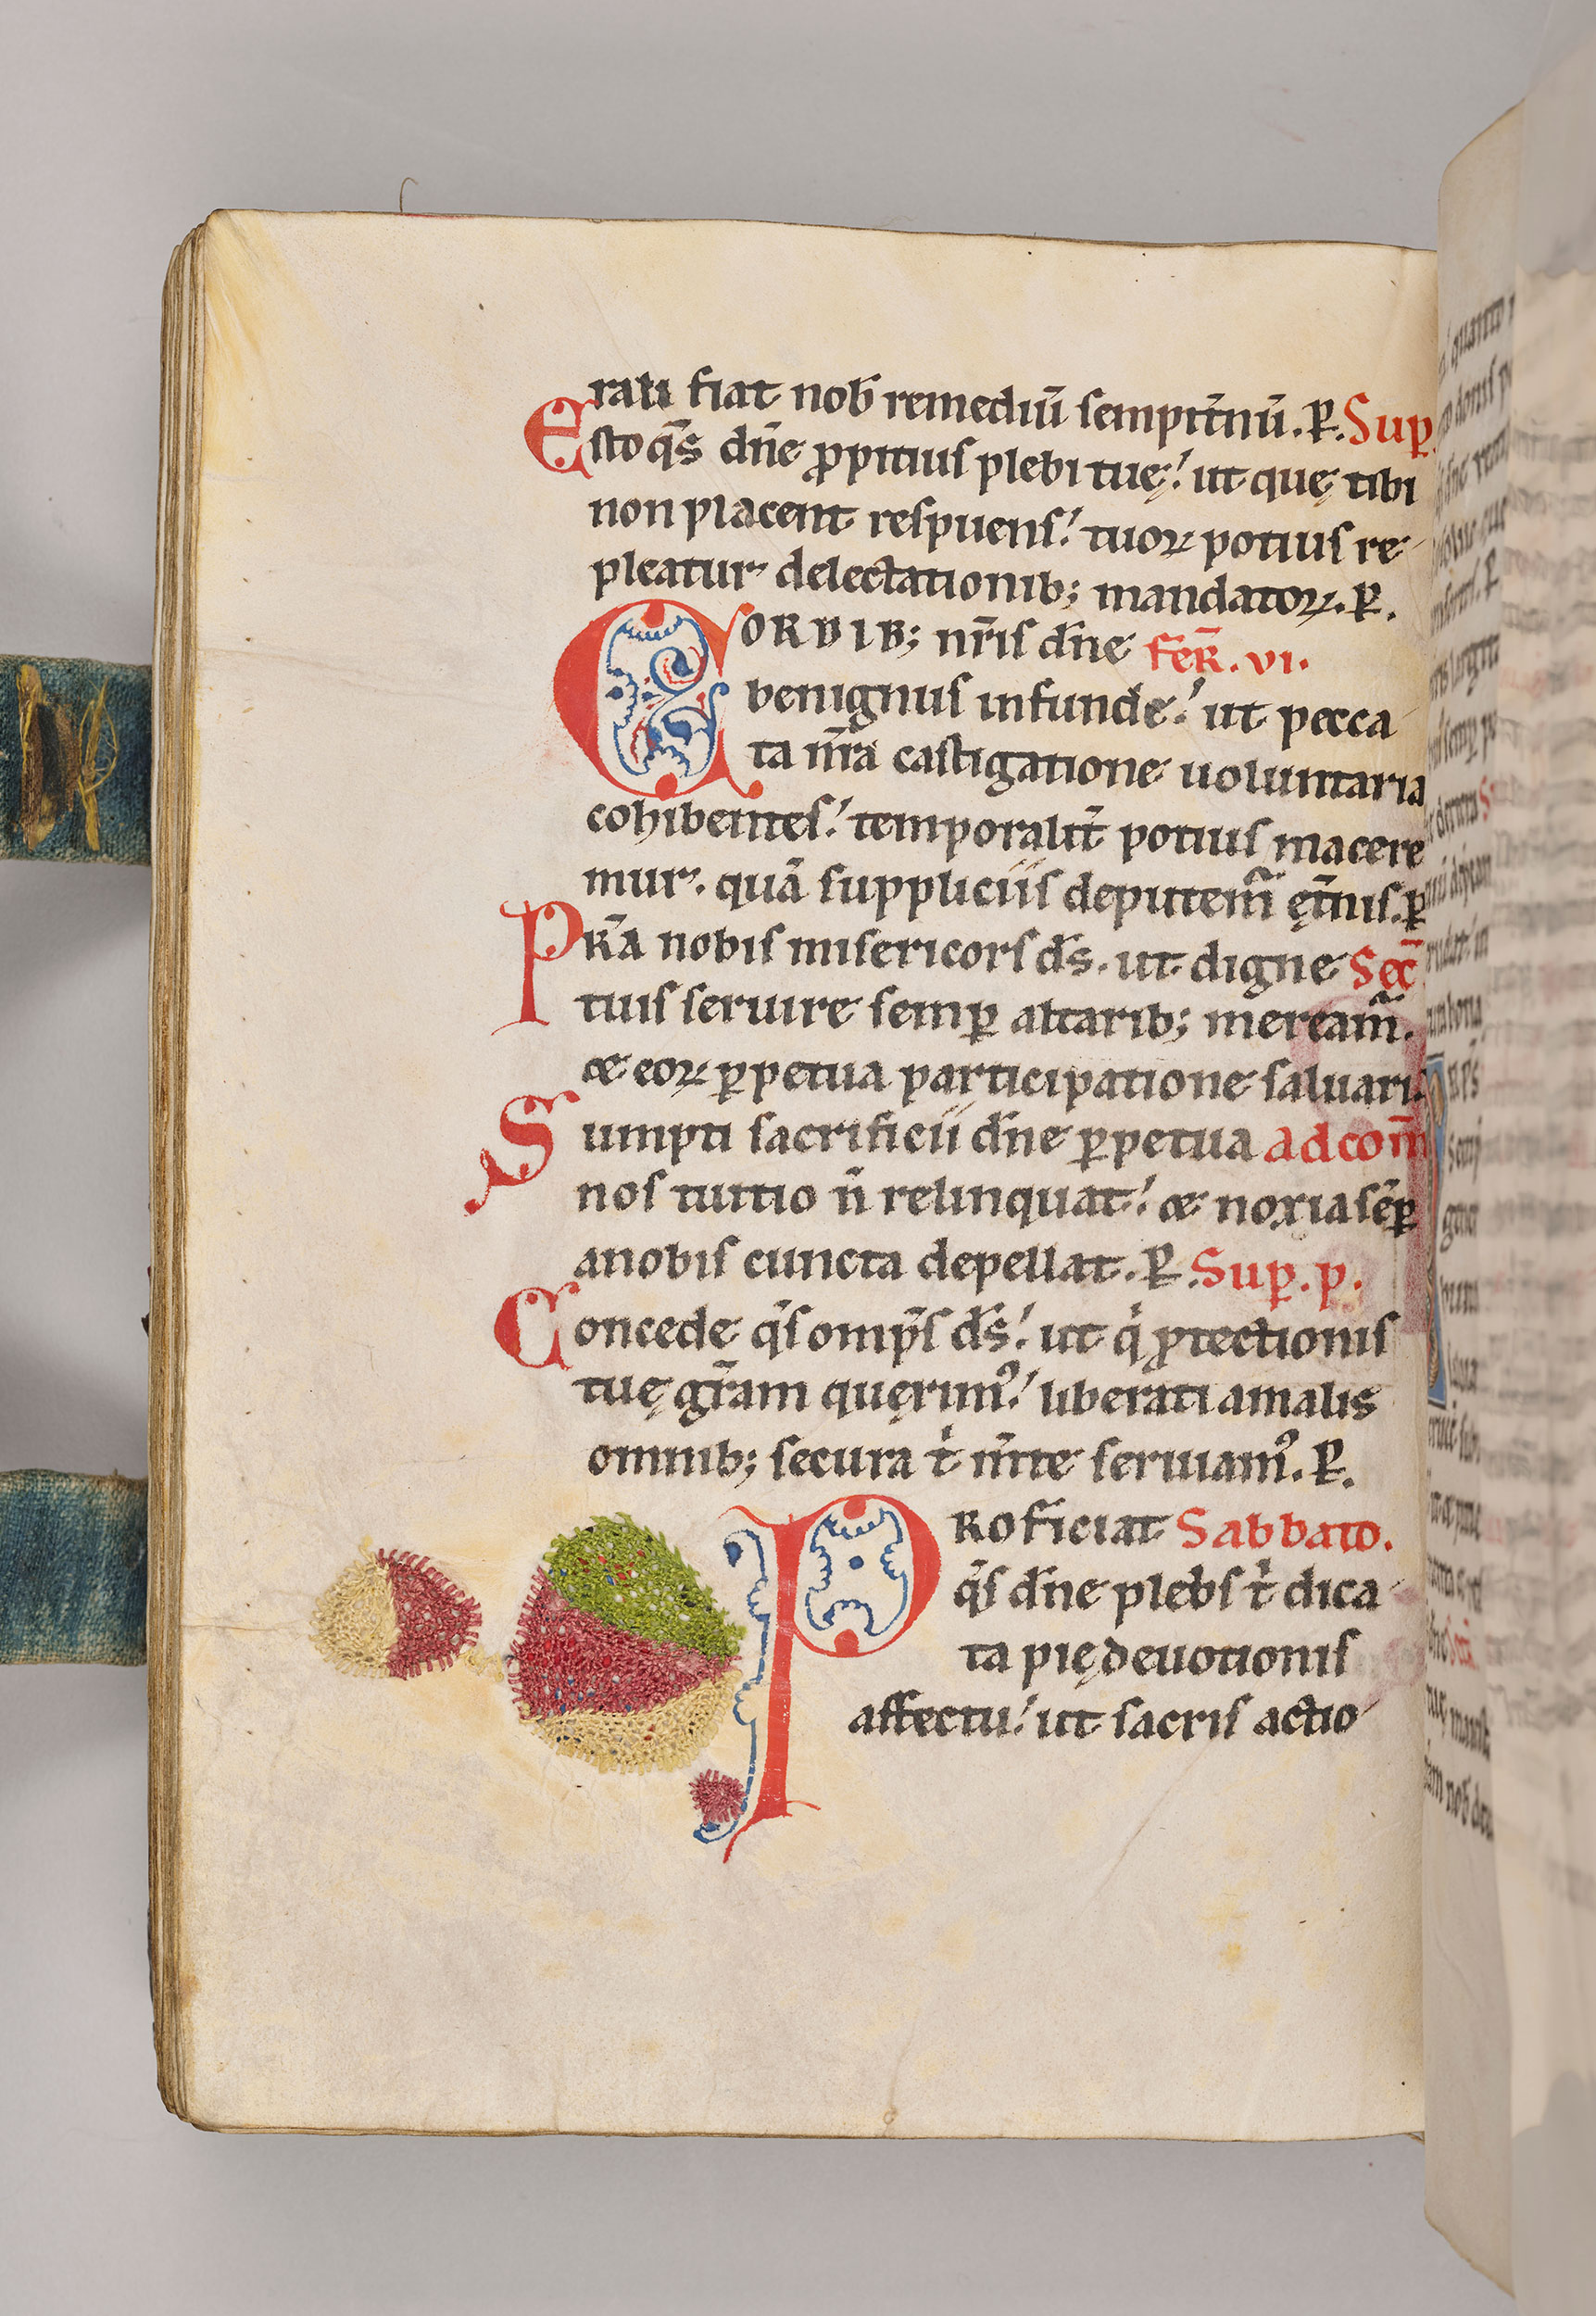 rali fiat nob̄ remediū sempit̄nū. P̱. Sup̱.
Esto q̄s dn̄e ꝓpitius plebi tuę! ut quę tibi
non placent respuens! tuoꝝ potius re-
pleatur delectationib; mandatoꝝ. P̱.
CORDIB; nr̄is dn̄e FER̄. VI.
benignus infunde! ut pecca-
ta nr̄a castigatione uoluntaria
cohibentes! temporalit̄ potius macere
mur. quā suppliciis deputem̄ ęt̄nis. P̱
PR̄A nobis misericors ds̄. ut digne Sec̄
tuis seruire semꝑ altarib; meream̄.
& eoꝝ ꝑpetua participatione saluari.
Sumpti sacrificii dn̄e ꝑpetua adcom̄
nos tuitio n̄ relinquat! & noxia sēꝑ
a nobis cuncta depellat. P̱. Sup̱. p.
Concede q̄s omp̄s ds̄! ut qͥ ꝓtectionis
tuę gr̄am querimꝰ! liberati a malis
omnib; secura tͥ m̄te seruiamꝰ. P̱.
PROficiat Sabbato.
q̄s dn̄e plebs tͥ dica-
ta pię deuotionis
affectu! ut sacris actio-